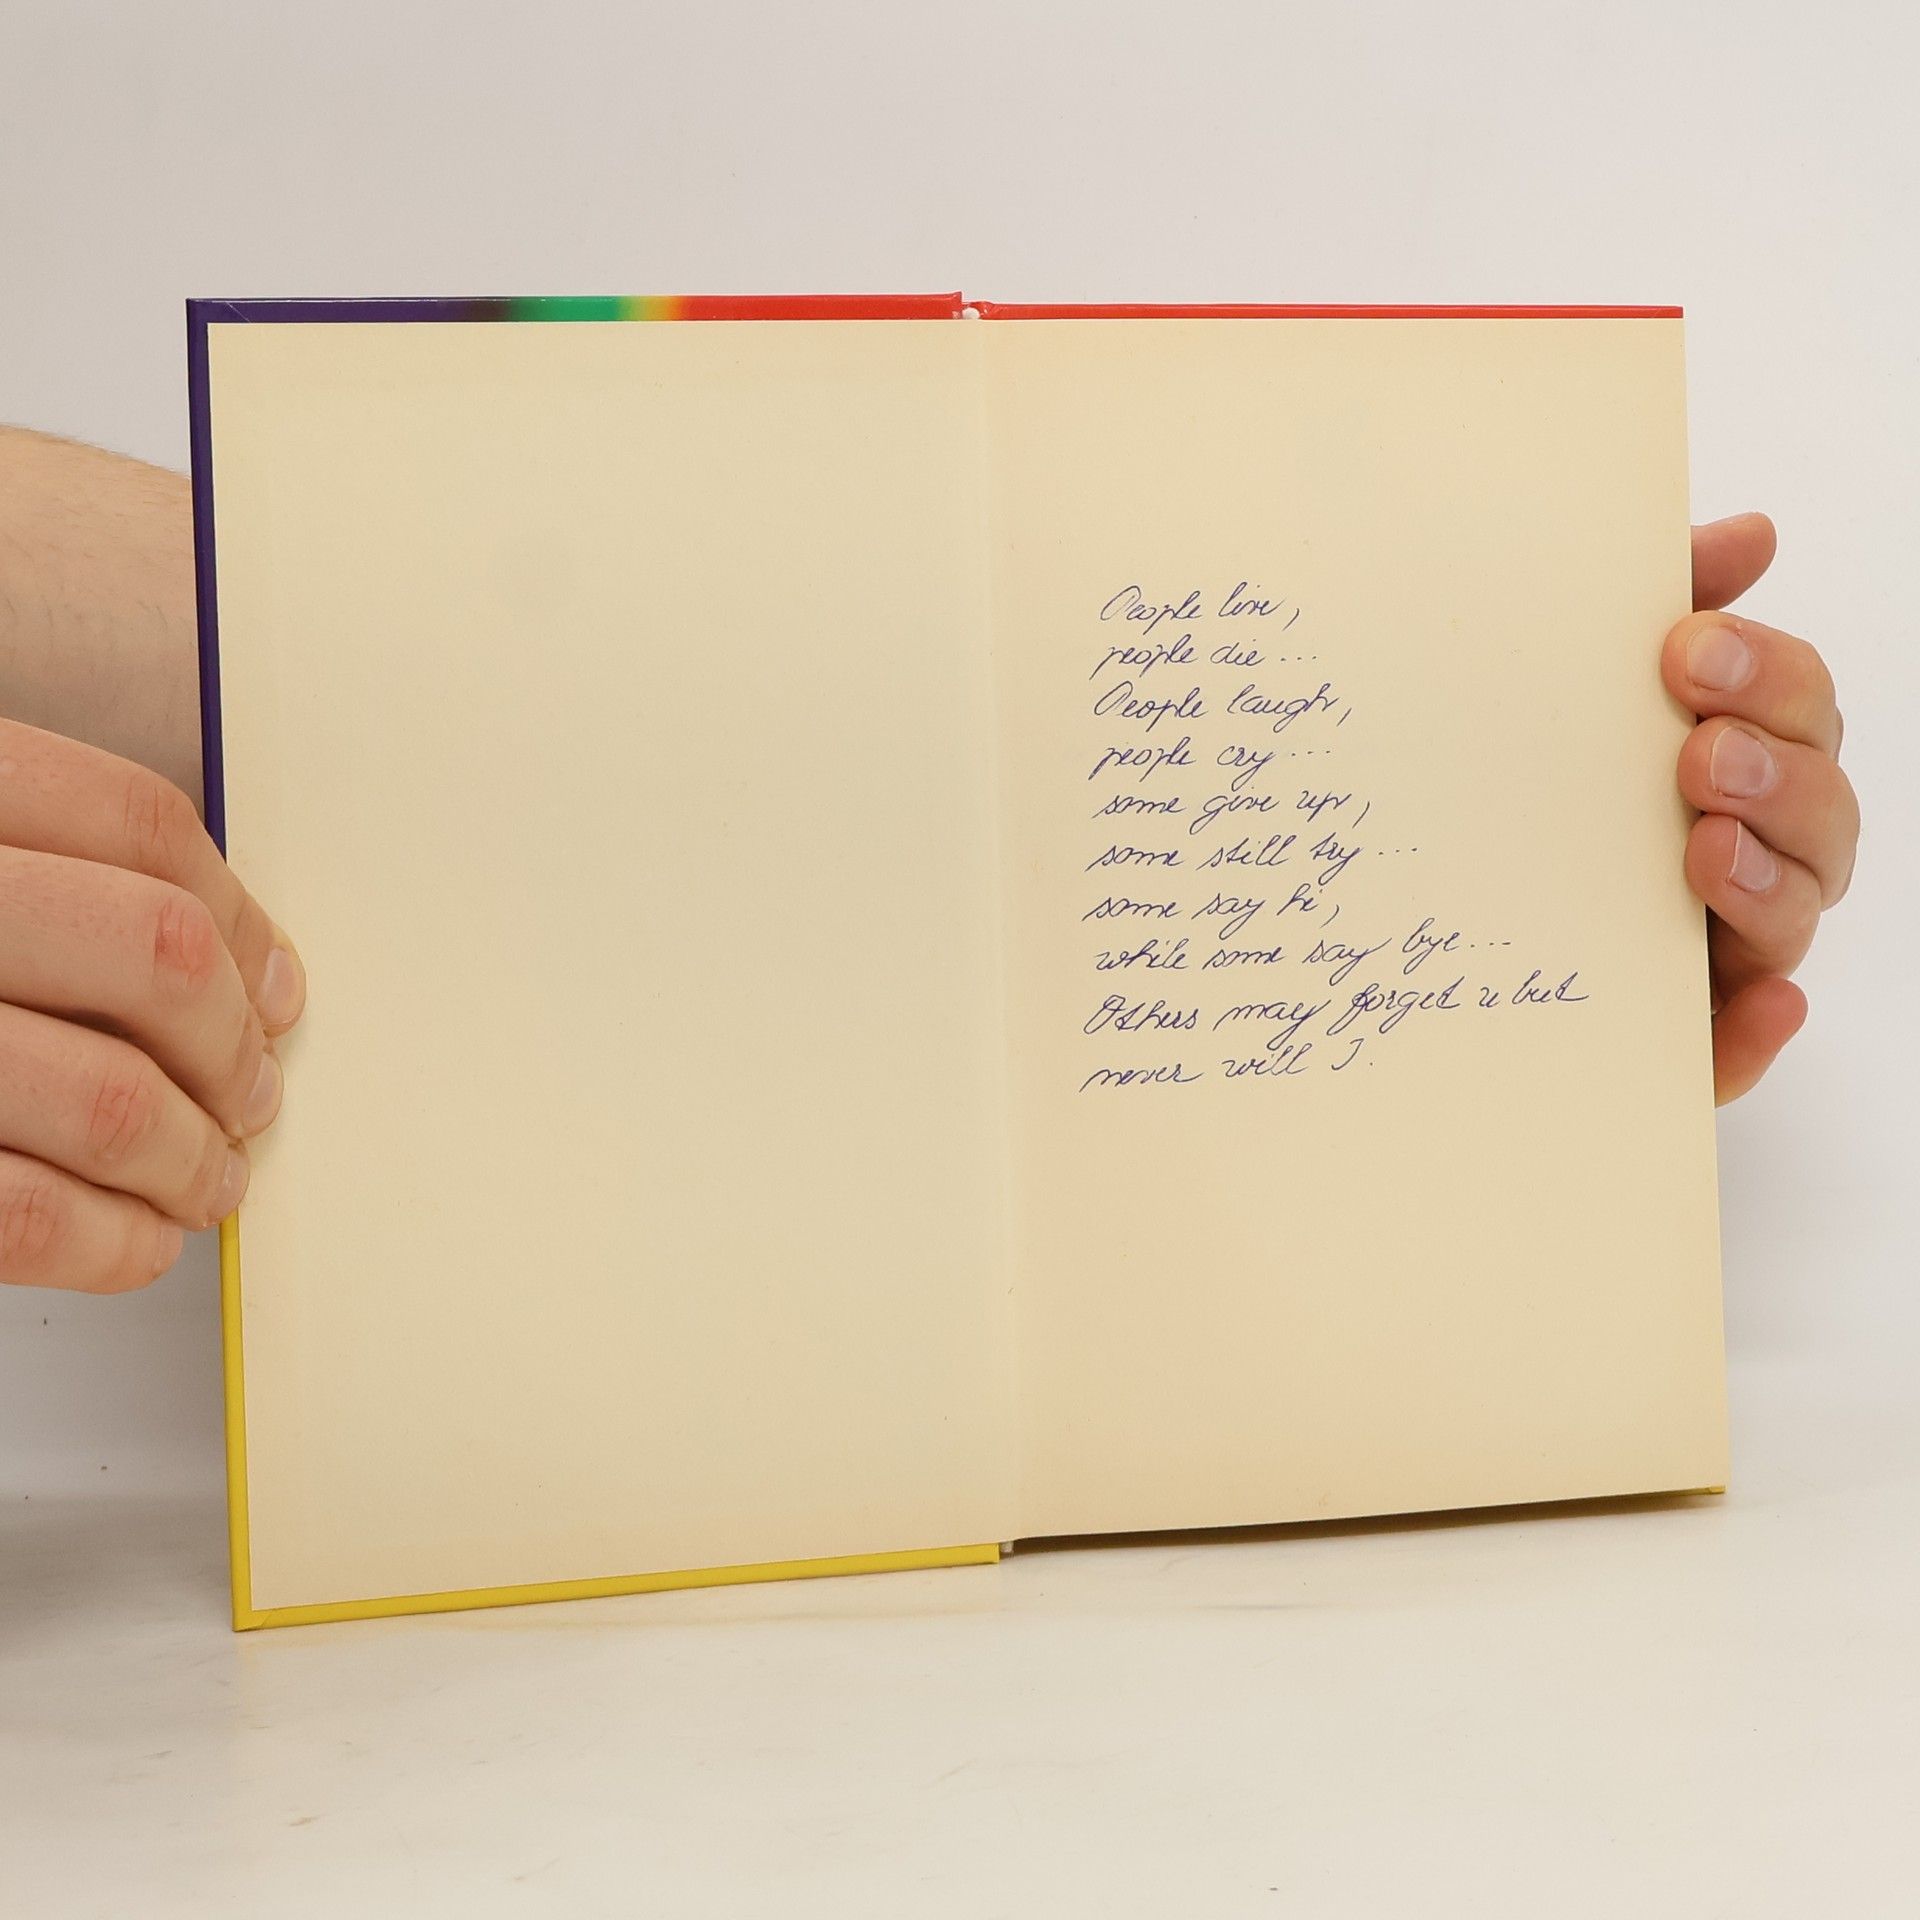 People live,
people die...
People laugh,
people cry...
some give up,
some still try...
some say hi,
while some say bye...
Others may forget u but
never will I.